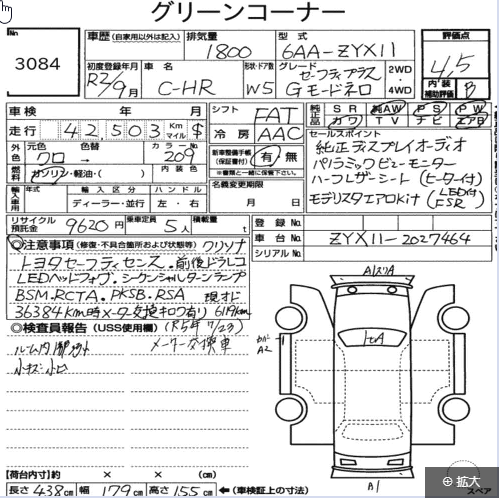 グリーンコーナー
No 3084
車歴(自家用以外は記入) 排気量 1800 型式 6AA-ZYX11 評価点 4.5
初度登録年月 R2/9月 車名 C-HR 形状・ドア数 W5 グレード セーフティプラス Gモードネロ 2WD 4WD 内装 補助評価 B
車検 年 月 シフト FAT 純正品 SR AW PS PW
走行 42,503 Km マイル $ 冷房 AAC カワ TV ナビ エアB
外色 元色 クロ 色替 → カラーNo. 209 新車整備手帳(保証書付) 有・無
燃料 ガソリン・軽油・( ) 内装色
セールスポイント
純正ディスプレイオーディオ
パノラミックビューモニター
ハーフレザーシート(ヒーター付)
モデリスタエアロKit(LED付 FSR)
輸入車用 年式 輸入区分 ディーラー・並行 ハンドル 左・右 名義変更期限 月 日
リサイクル預託金 9620円 乗車定員 5人 積載量 t
登録No.
車台No. ZYX11-2027464
シリアルNo.
◎注意事項(修復・不具合箇所および状態等) ワリソナ
トヨタセーフティセンス.前後ドラレコ
LEDヘッドフォグ.シーケンシャルターンランプ
BSM.RCTA.PKSB.RSA 現オド
36384Km時メーター交換キロク有り 6119km
◎検査員報告(USS使用欄) (R5年7/23)
ルーム内 メーター交換車
小キズ.小凹
A1スリA
A2
A1
【荷台内寸】約 × × (cm)
長さ 438cm 幅 179cm 高さ 155cm ←(車検証上の寸法)
スペア
拡大